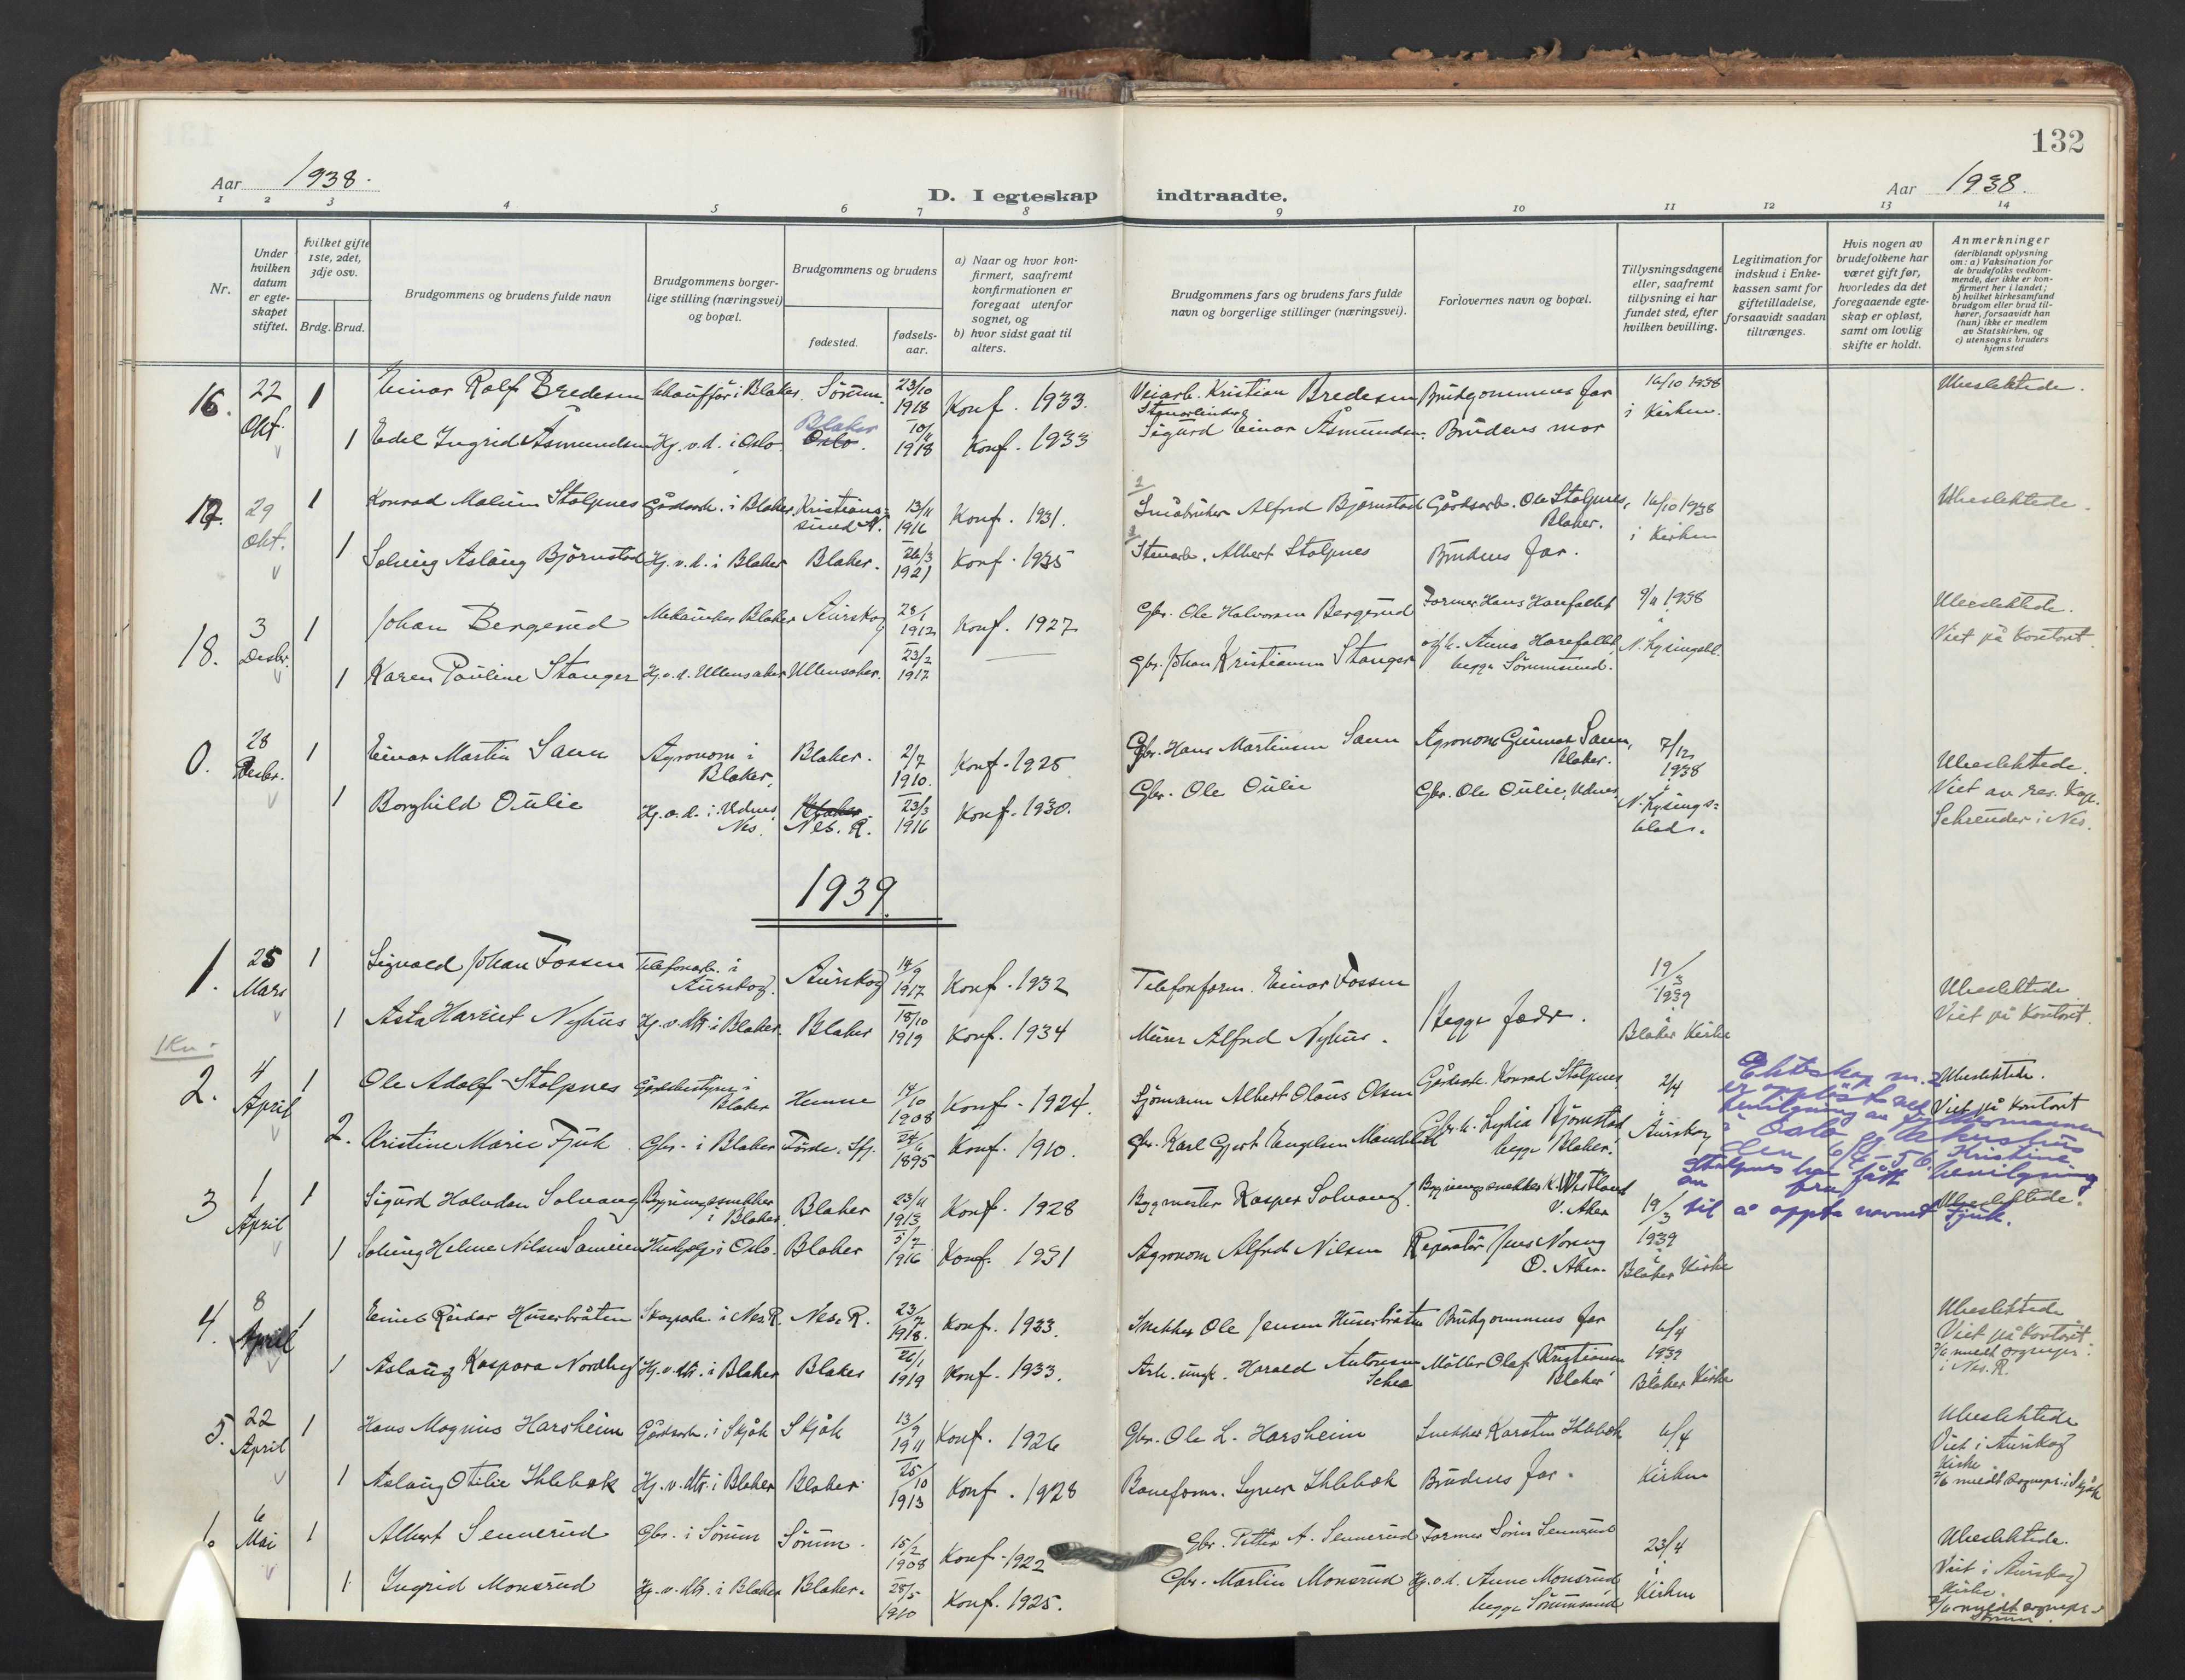 132
Aar 1938.
D. I egteskap indtraadte.
Aar 1938.
1 2 3 4 5 6 7 8 9 10 11 12 13 14
Nr.
Under hvilken datum er egte-skapet stiftet.
hvilket gifte 1ste, 2det, 3dje osv.
Brdg. Brud.
Brudgommens og brudens fulde navn
Brudgommens borger-lige stilling (næringsvei) og bopæl.
Brudgommens og brudens
fødested.
fødsels-aar.
a) Naar og hvor kon-firmert, saafremt konfirmationen er foregaat utenfor sognet, og
b) hvor sidst gaat til alters.
Brudgommens fars og brudens fars fulde navn og borgerlige stillinger (næringsvei).
Forlovernes navn og bopæl.
Tillysningsdagene eller, saafremt tillysning ei har fundet sted, efter hvilken bevilling.
Legitimation for indskud i Enke-kassen samt for giftetilladelse, forsaavidt saadan tiltrænges.
Hvis nogen av brudefolkene har været gift før, hvorledes da det foregaaende egte-skap er opløst, samt om lovlig skifte er holdt.
Anmerkninger (deriblandt oplysning om: a) Vaksination for de brudefolks vedkom-mende, der ikke er kon-firmert her i landet; b) hvilket kirkesamfund brudgom eller brud til-hører, forsaavidt han (hun) ikke er medlem av Statskirken, og c) utensogns bruders hjemsted
16. 22 Okt. 1 Einar Rolf Bredesen Chauffør i Blaker. Sörum. 23/10 1918 Konf. 1933. Veiarb. Kristian Bredesen Brudgommens far 16/10 1938 i Kirken. Ubeslektede.
1 Edel Ingrid Åsmundsen Hj. v. d. i Oslo. Blaker Oslo. 1918 Konf. 1933 Sigurd Einar Åsmundsen. Brudens mor
17. 29 Okt. 1 Konrad Malum Stolpnes Gårdsarb. i Blaker Kristians-sund N. 13/11 1916 Konf. 1931. Småbruker Alfred Björnstad Gårdsarb. Ole Stolpnes, Blaker. 16/10 1938 i Kirken Ubeslektede.
1 Solveig Aslaug Björnstad Hj. v. d. i Blaker Blaker. 26/3 1921 Konf. 1935 Stenarb. Albert Stolpnes Brudens far.
18. 3 Desbr. 1 Johan Bergerud Mekaniker Blaker Aurskog 1912 Konf. 1927 Gbr. Ole Halvorsen Bergerud Former Hans Harefallet 9/11 1938 Ubeslektede. Viet på kontoret.
1 Karen Pauline Stanger Hj. v. d. Ullensaker Ullensaker. 23/2 1917 Gbr. Johan Kristiansen Stanger Harefallet, begge Sörumsund. N. Lysingsbl.
0. 28 Desbr. 1 Einar Martin Saun Agronom i Blaker, Blaker. 2/7 1910. Konf. 1925 Gbr. Hans Martinsen Saun Agronom Gunnar Saun, Blaker. 7/12 1938 i N. Lysings-blad. Ubeslektede. Viet av res. Kap. Schreuder i Nes.
1 Borghild Oulie Hj. v. d. i Udnes Nes. Blaker Nes. R. 23/3 1916 Konf. 1930. Gbr. Ole Oulie Gbr. Ole Oulie, Udnes
1939.
1. 25 Mars 1 Sigvald Johan Fossen Telefonarb. i Aurskog. Aurskog 14/9 1917 Konf. 1932 Telefonform. Einar Fossen Begge fedre. 19/3 1939 i Blaker Kirke Ubeslektede Viet på kontoret.
1 Asta Harriet Nyhus Hj. v. dtr. i Blaker. Blaker 15/10 1919 Konf. 1934 Murer Alfred Nyhus.
2. 4 April 1 Ole Adolf Stolpnes Gårdsbestyrer i Blaker Hemne 14/10 1908 Konf. 1924. Sjömann Albert Olaus Olsen Gårdsarb. Konrad Stolpnes 2/4 i Aurskog Ubeslektede. Viet på kontoret
2. Kristine Marie Fjuk Gbr. i Blaker Förde, Sfj. 1895 Konf. 1910. Gbr. Karl Gjert Engelsen Lydia Björnstad begge Blaker.
Ekteskap nr. 2 er oppløst ved bevilgning av fylkesmannen i Oslo og Akershus den 6/4-56. Kristine Stolpnes har fått bevilgning til å oppta navnet Fjuk.
3 1 April 1 Sigurd Halvdan Solvang Bygningssnekker i Blaker Blaker 23/11 1913 Konf. 1928 Byggmester Kasper Solvang Bygningssnekker K. Westlund V. Aker 19/3 1939 i Blaker Kirke Ubeslektede.
1 Solveig Helene Nilsen i Oslo. Blaker 5/7 1916 Konf. 1931 Agronom Alfred Nilsen Reparatör Jens Noreng Ö. Aker.
4. 8 April 1 Einar Reidar Huserbråten Skogsarb. i Nes R. Nes. R. 23/7 1918. Konf. 1933. Snekker Ole Jensen Huserbråten Brudgommens far 6/4 1939 i Blaker Kirke Ubeslektede Viet på kontoret. meldt sognepr. i Nes. R.
1 Aslaug Kaspara Nordby Hj. v. dtr. i Blaker Blaker 26/1 1919 Konf. 1933. Harald Antonsen Møller Olaf Kristiansen Blaker
5. 22 April 1 Hans Magnus Harsheim Gårdsarb. i Skjåk Skjåk 13/9 1911 Konf. 1926 Gbr. Ole L. Harsheim Snekker Karsten Ihlebæk 6/4 i Kirken Ubeslektede Viet i Aurskog Kirke meldt sognepr. i Skjåk
1 Aslaug Otilie Ihlebæk Hj. v. dtr. i Blaker Blaker 25/10 1913 Konf. 1928 Baneform. Syver Ihlebæk Brudens far.
6 Mai 1 Albert Sennerud Gbr. i Sörum Sörum. 15/2 1908 Konf. 1922 Gbr. Petter A. Sennerud Former Sörin Sennerud 23/4 i Kirken Ubeslektede. Viet i Aurskog Kirke. meldt sognepr. i Sörum.
1. Ingrid Monsrud Hj. v. dtr. i Blaker Blaker. 28/5 1910 Konf. 1925. Gbr. Martin Monsrud Hj. v. d. Anne Monsrud begge Sörumsand